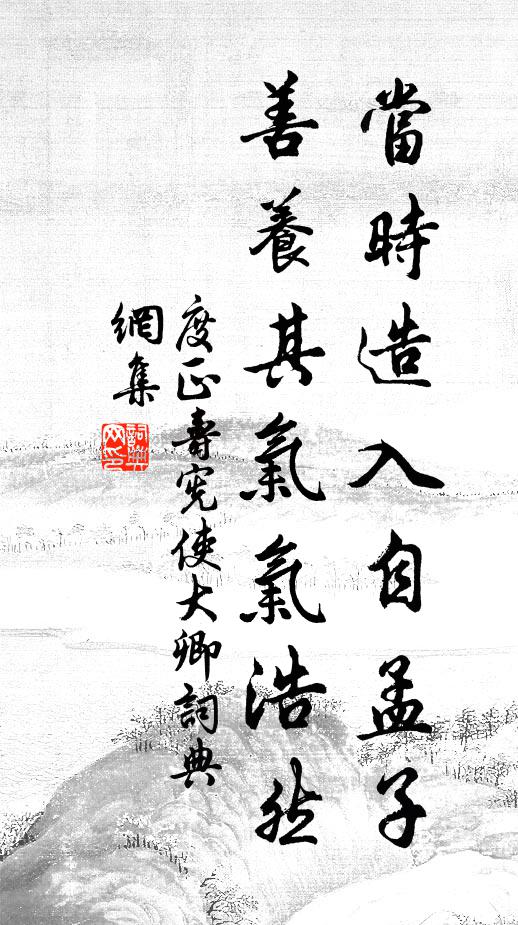 當時造入自孟子
善養其氣氣浩然
度正壽宪使大卿詞典
網集
詞典
网印